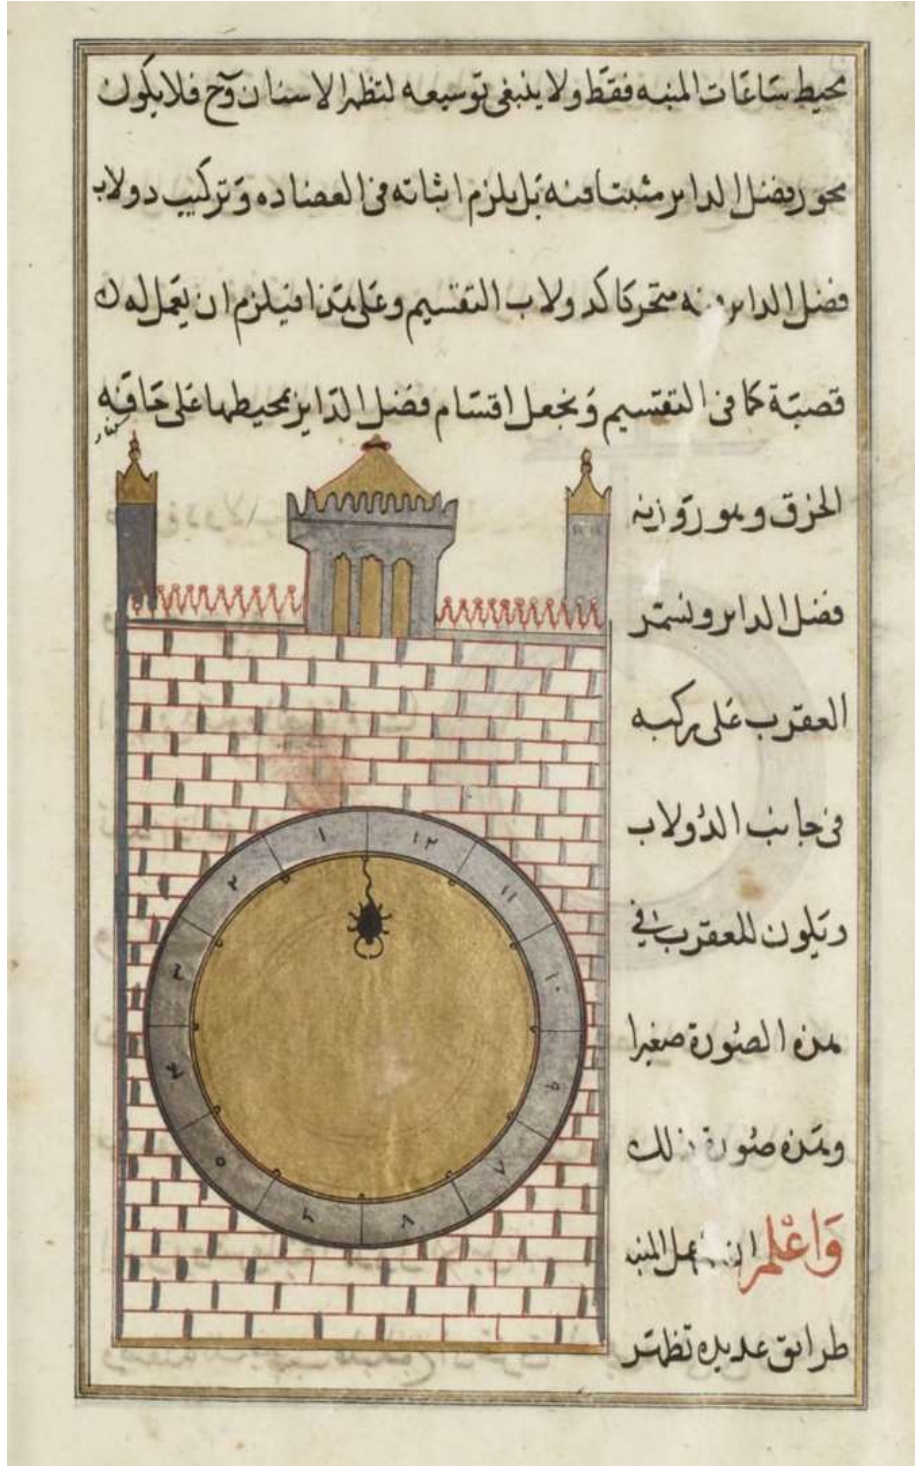 محيط ساعات المنبه فقط ولا ينبغى توسيعه لتظهر الاسنان وح فلا يكون
محور فضل الداير مثبتا فيه بل يلزم اثباته فى العضاده وتركيب دولاب
فضل الداير منه متحركا كدولاب التقسيم وعلى هذا فيلزم ان يعمل له
قصبة كما فى التقسيم ونجعل اقسام فضل الداير بمحيطها على حافة
الخرق وهو روزنه
فضل الداير ونسمر
العقرب على ركبه
فى جانب الدولاب
ويكون للعقرب فى
هذه الصورة صغيرا
وهذه صورة ذلك
وَاعْلم ان لعمل المنبه
طرايق عديده تظهر
١٢
١
١١
٢
١٠
٣
٩
٤
٨
٥
٧
٦